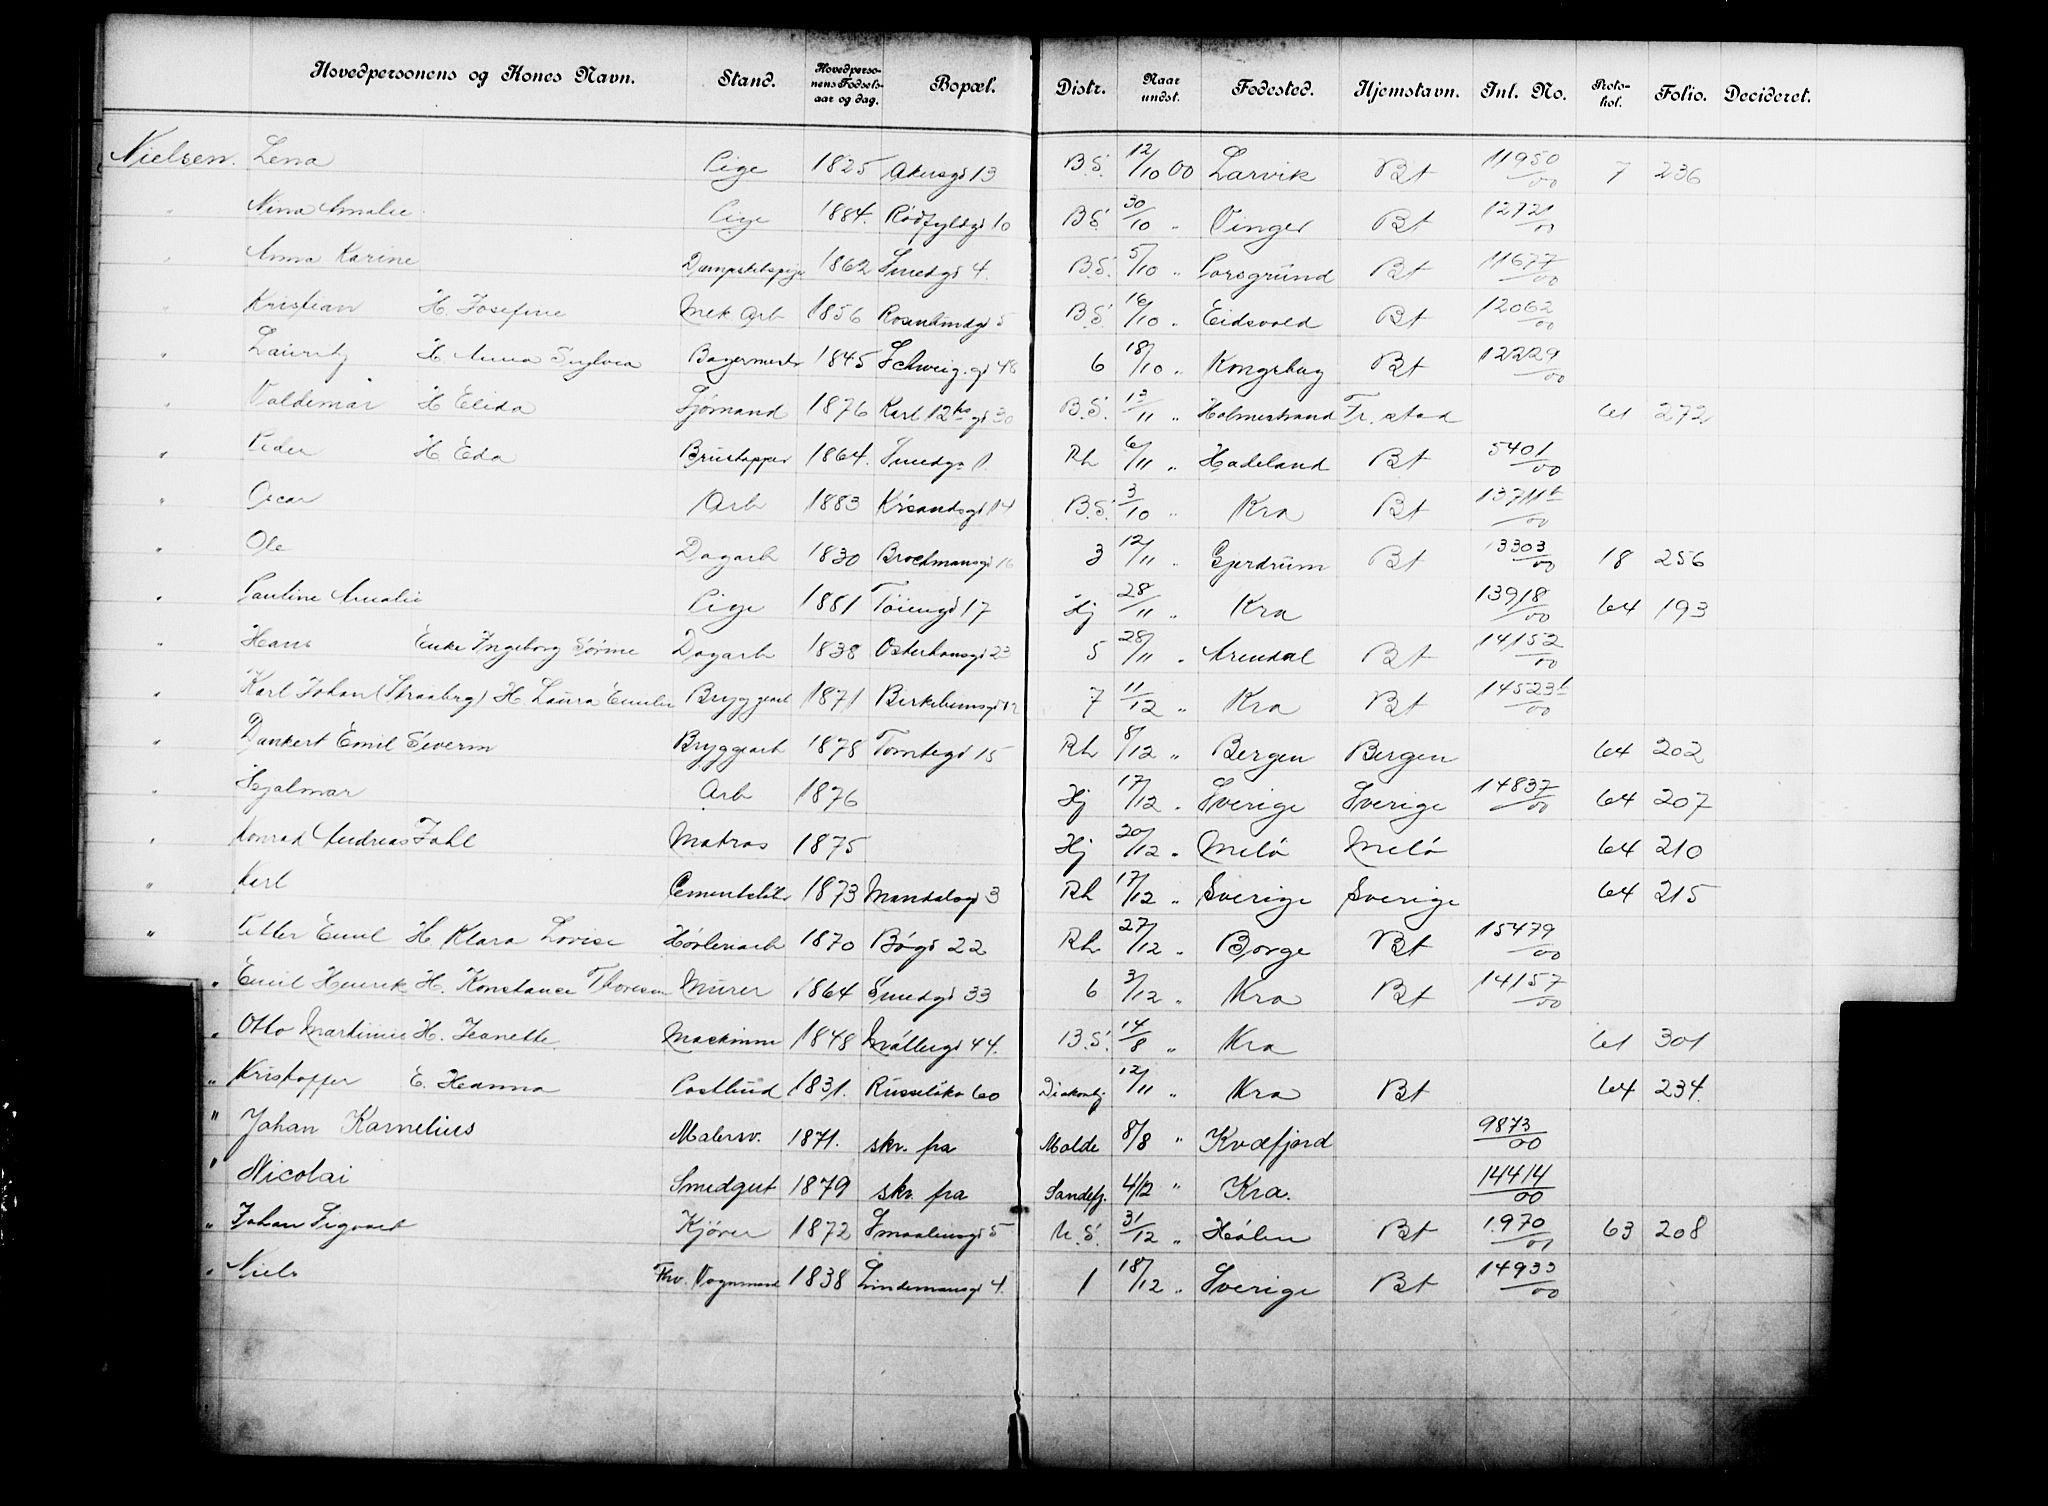 Hovedpersonens og Kones Navn. Stand. Hovedpersonens Fødselsaar og dag. Bopæl. Distr. Naar undst. Fødested. Hjemstavn. Int. No. Protokol. Folio. Decideret.
Nielsen. Lena Pige 1825 Akersgd 13 B.S. 12/10 00 Larvik Bt 11950/00 7 236
" Nina Amalie Pige 1884. Rødfyldgd 10 B.S. 30/10 " Vinger Bt 12721/00
" Anna Karine 1862 Smedgd 4. B.S. 5/10 " Porsgrund Bt 11677/00
" Kristian H. Josefine Mek Arb 1856 Rosenlundgd 5 B.S. 16/10 " Eidsvold Bt 12062/00
" Lauritz H Anna Sylvia Bagermestr 1845 Schweig.gd 48 6 18/10 " Kongsbug Bt 12229/00
" Valdemar H Elida Sjømand 1876 Karl 12tes gd 30 B.S. 13/11 " Holmestrand Fr. stad 61 272
" Peder H. Eda Brustapper 1864. Smedgd 1. Rh 6/11 " Hadeland Bt 5401/00
" Oscar Arb 1883 Kr'sandsgd 14 B.S. 3/10 " Kra Bt 13711b/00
" Ole Dagarb 1830 Brochmansgd 16 3 12/11 " Gjerdrum Bt 13303/00 18 256
" Pauline Amalie Pige 1881 Tøiengd 17 Hj 28/11 " Kra 13918/00 64 193
" Hans Enke Ingeborg Sørine Dagarb 1838 Osterhausgd 23 5 28/11 " Arendal Bt 14152/00
" Karl Johan (Straaberg) H Laura Emilie Bryggearb 1871 Birkebeinsgd 12 7 11/12 " Kra Bt 14523b/00
" Dankert Emil Severin Bryggearb 1878 Tomtegd 15 Rh 8/12 " Bergen Bergen 64 202
" Hjalmar Arb 1876 Hj 17/12 " Sverige Sverige 14837/00 64 207
" Konrad Andreas Fahl Matros 1875 Hj 20/12 " Melø Melø 64 210
" Karl 1873 Mandalsgd 3 Rh 17/12 " Sverige Sverige 64 215
" Petter Emil H. Klara Lovise Høvleriarb 1870 Bøgd 22 Rh 27/12 " Borge Bt 15479/00
" Emil Henrik H. Konstanse Thoresen Murer 1864 Smedgd 33 6 3/12 " Kra Bt 14157/00
" Otto Martinius H. Jeanette Maskinm 1848 Møllergd 44. B.S. 14/8 " Kra 61 301
" Kristoffer E. Hanna Postbud 1831. Russeløka 60 Diakonhj. 12/11 " Kra Bt 64 234.
" Johan Kornelius Malersv. 1871. skr. fra Molde 8/8 " Kvæfjord 9873/00
" Nicolai Smedgut 1879 skr. fra Sandefj. 4/12 " Kra. 14414/00
" Johan Sigvart Kjører 1872 Smaalensgd 5 U.S. 31/12 " Hølen Bt 1970/01 63 208
" Niels Fhv. Vognmand 1838 Lindemansgd 4. 1 18/12 " Sverige Bt 14933/00